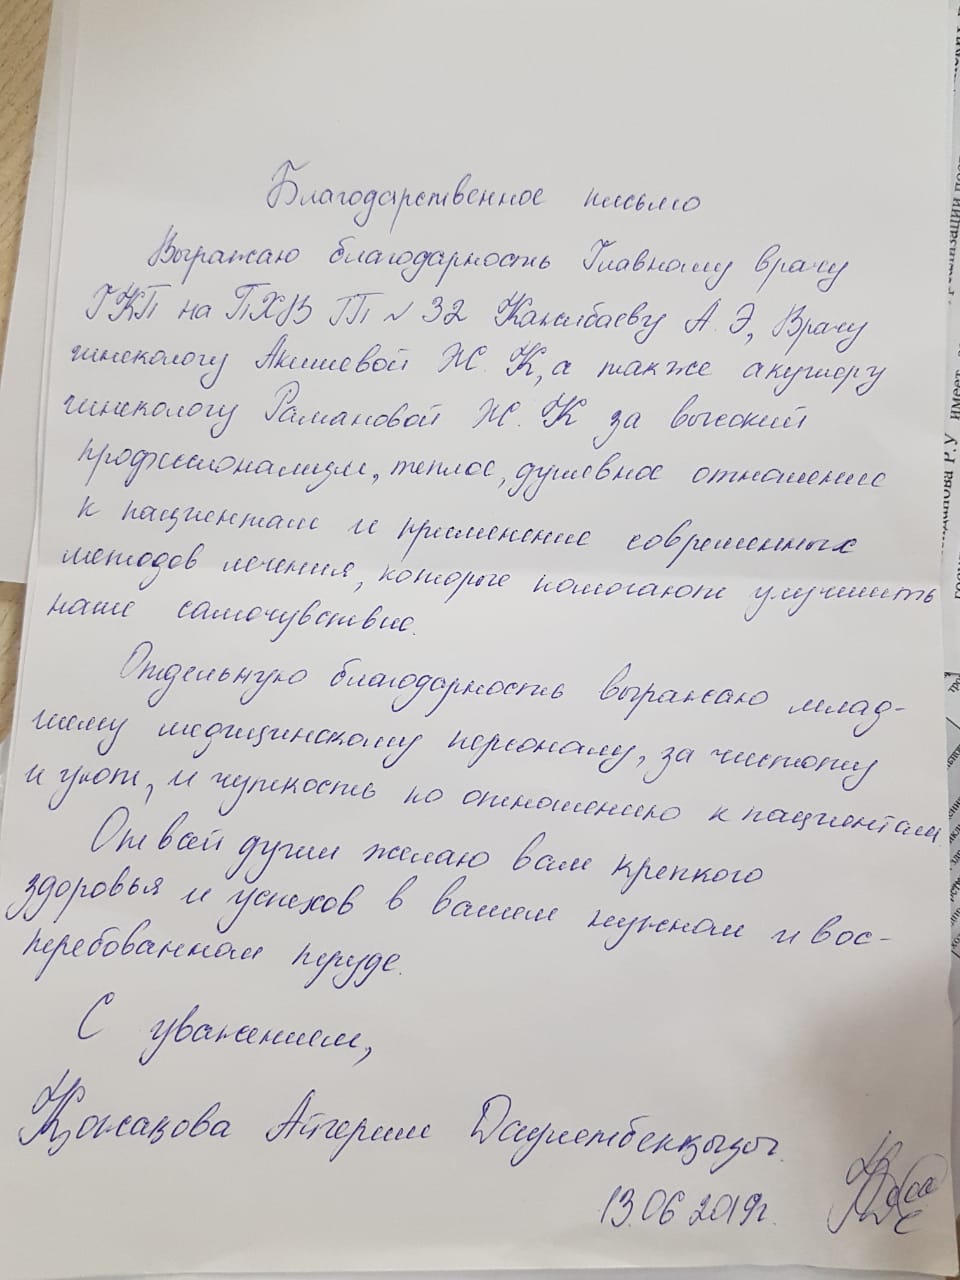 Благодарственное письмо
Выражаю благодарность Главному врачу
ГКП на ПХВ ГП №32 Канлбаеву А.Э, Врачу
гинекологу Акишевой Ж.К, а также акушеру
гинекологу Рамановой Ж.К за высокий
профессионализм, теплое, душевное отношение
к пациентам и применение современных
методов лечения, которые помогают улучшить
наше самочувствие.
Отдельную благодарность выражаю млад-
шему медицинскому персоналу, за чистоту
и уют, и чуткость по отношению к пациентам.
От всей души желаю вам крепкого
здоровья и успехов в вашем нужном и вос-
требованном труде.
С уважением,
Қожақова Айгерим Даулетбекқызы.
13.06.2019г.